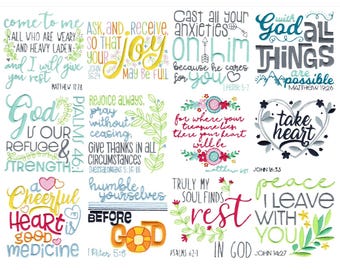 come to me
ALL WHO ARE WEARY
AND HEAVY LADEN
and I will give
you rest
MATTHEW 11:28
ASK, AND
RECEIVE,
SO THAT
YOUR
JOY
MAY BE Full
CAST all your
anxieties
on him
because he cares
for you
with
God all
THINGS
are possible
MATTHEW 19:26
God
is OUR
REFUGE &
STRENGTH
PSALM 46:1
Rejoice always,
pray without
ceasing,
GIVE THANKS IN ALL
CIRCUMSTANCES
for where your
treasure lies
there your heart
will be
take
heart
JOHN 16:33
a
Cheerful
HEART is
good
medicine
humble
yourselves
BEFORE
GOD
TRULY MY
SOUL FINDS
rest
IN GOD
PSALMS 62:1
peace
I LEAVE
WITH
YOU
JOHN 14:27